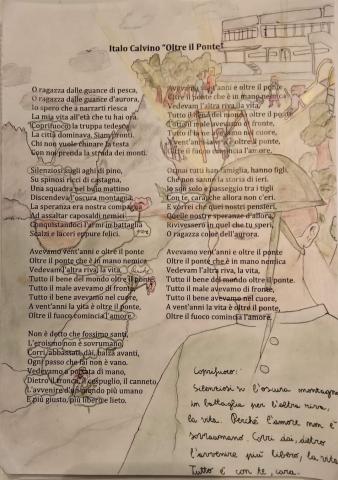 Italo Calvino "Oltre il Ponte"
O ragazza dalle guance di pesca,
O ragazza dalle guance d'aurora,
Io spero che a narrarti riesca
La mia vita all'età che tu hai ora.
Coprifuoco: la truppa tedesca
La città dominava. Siam pronti.
Chi non vuole chinare la testa
Con noi prenda la strada dei monti.
Silenziosi sugli aghi di pino,
Su spinosi ricci di castagna,
Una squadra nel buio mattino
Discendeva l'oscura montagna.
La speranza era nostra compagna
Ad assaltar caposaldi nemici
Conquistandoci l'armi in battaglia
Scalzi e laceri eppure felici.
Avevamo vent'anni e oltre il ponte
Oltre il ponte che è in mano nemica
Vedevam l'altra riva, la vita,
Tutto il bene del mondo oltre il ponte.
Tutto il male avevamo di fronte,
Tutto il bene avevamo nel cuore,
A vent'anni la vita è oltre il ponte,
Oltre il fuoco comincia l'amore.
Non è detto che fossimo santi,
L'eroismo non è sovrumano,
Corri, abbassati, dài, balza avanti,
Ogni passo che fai non è vano.
Vedevamo a portata di mano,
Dietro il tronco, il cespuglio, il canneto,
L'avvenire d'un mondo più umano
E più giusto, più libero e lieto.
Avevamo vent'anni e oltre il ponte
Oltre il ponte che è in mano nemica
Vedevam l'altra riva, la vita,
Tutto il bene del mondo oltre il ponte.
Tutto il male avevamo di fronte,
Tutto il bene avevamo nel cuore,
A vent'anni la vita è oltre il ponte,
Oltre il fuoco comincia l'amore.
Ormai tutti han famiglia, hanno figli,
Che non sanno la storia di ieri.
Io son solo e passeggio tra i tigli
Con te, cara, che allora non c'eri.
E vorrei che quei nostri pensieri,
Quelle nostre speranze d'allora,
Rivivessero in quel che tu speri,
O ragazza color dell'aurora.
Avevamo vent'anni e oltre il ponte
Oltre il ponte che è in mano nemica
Vedevam l'altra riva, la vita,
Tutto il bene del mondo oltre il ponte.
Tutto il male avevamo di fronte,
Tutto il bene avevamo nel cuore,
A vent'anni la vita è oltre il ponte,
Oltre il fuoco comincia l'amore.
Coprifuoco:
Silenziosi su l'oscura montagna
in battaglia per l'altra riva,
la vita. Perché l'amore non è
sovraumano. Corri dai, dietro
l'avvenire più libero, la vita
Tutto è con te, cara.